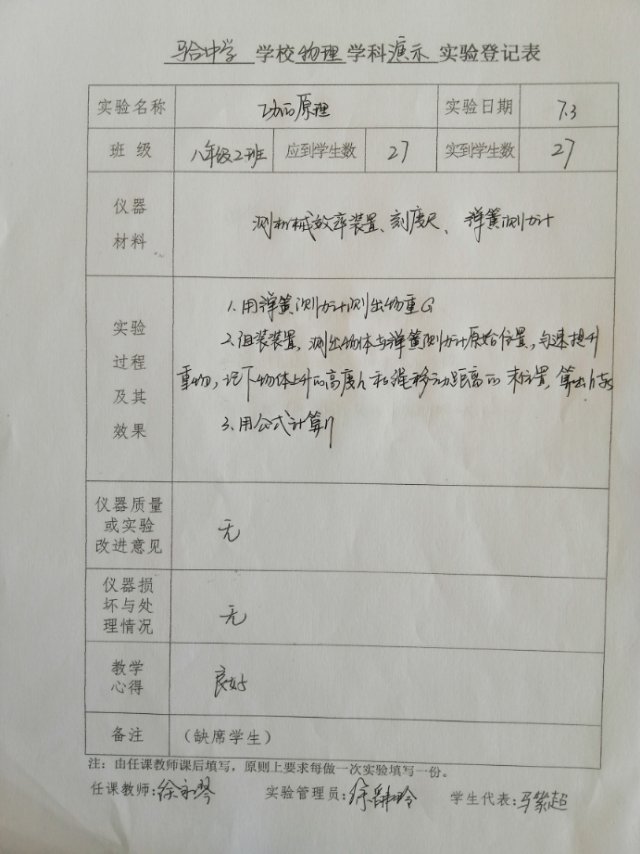 马合中学 学校 物理 学科 演示 实验登记表
实验名称 功的原理 实验日期 7.3
班 级 八年级2班 应到学生数 27 实到学生数 27
仪器
材料
测机械效率装置、刻度尺、弹簧测力计
实验
过程
及其
效果
1.用弹簧测力计测出物重G
2.组装装置,测出物体与弹簧测力计原始位置,匀速提升
重物,记下物体上升的高度h和绳移动距离的末位置,算出h
3.用公式计算η
仪器质量
或实验
改进意见
无
仪器损
坏与处
理情况
无
教学
心得
良好
备注 (缺席学生)
注:由任课教师课后填写,原则上要求每做一次实验填写一份。
任课教师:徐 琴 实验管理员:徐 玲 学生代表:马 超